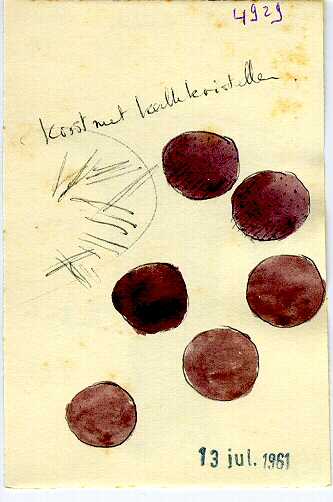 4929
korst met kalkkristallen
13 jul. 1961